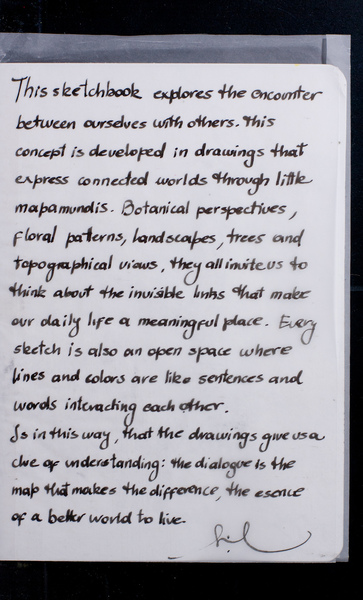 This sketchbook explores the encounter
between ourselves with others. This
concept is developed in drawings that
express connected worlds through little
mapamundis. Botanical perspectives,
floral patterns, landscapes, trees and
topographical views, they all invite us to
think about the invisible links that make
our daily life a meaningful place. Every
sketch is also an open space where
lines and colors are like sentences and
words interacting each other.
Is in this way, that the drawings give us a
clue of understanding: the dialogue is the
map that makes the difference, the esence
of a better world to live.